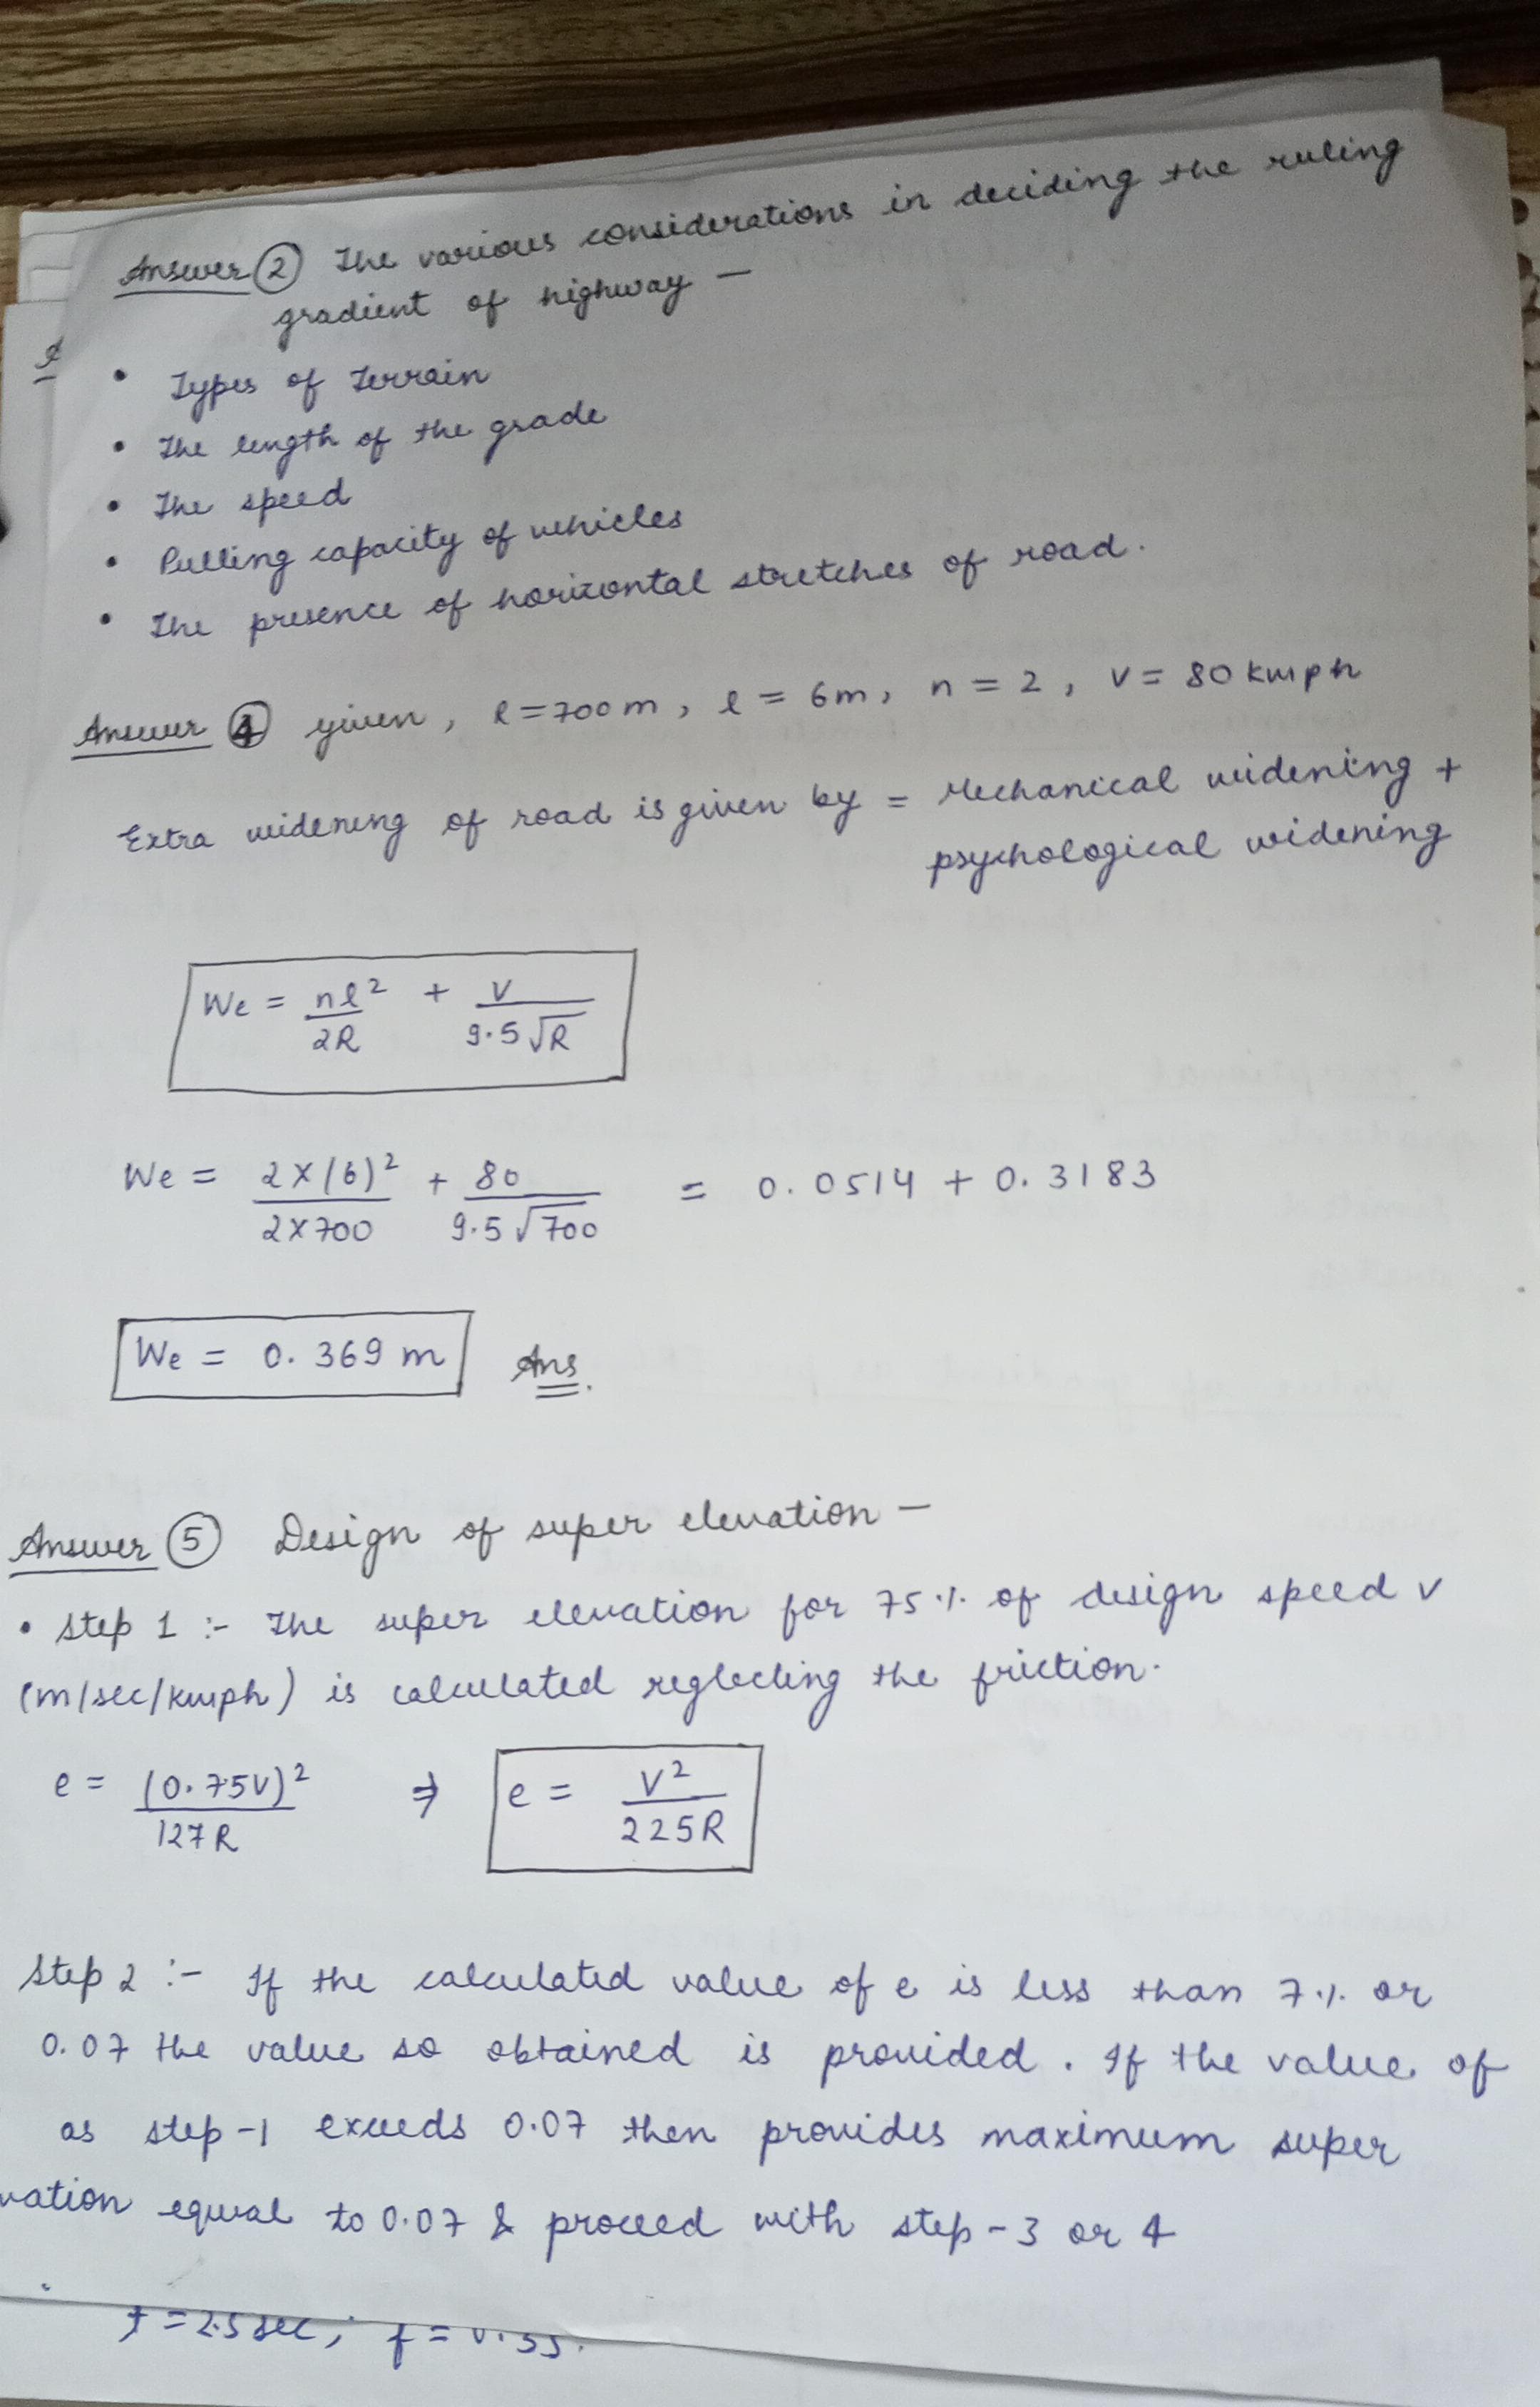 Answer ② The various considerations in deciding the ruling
gradient of highway —
• Types of Terrain
• The length of the grade
• The speed
• Pulling capacity of vehicles
• The presence of horizontal stretches of road.
Answer ④ given, l=700m, l = 6m, n = 2, v = 80 kmph
Extra widening of road is given by = Mechanical widening +
psychological widening
We = nl²/2R + V/9.5√R
We = 2×(6)²/2×700 + 80/9.5√700 = 0.0514 + 0.3183
We = 0.369 m Ans.
Answer ⑤ Design of super elevation —
• Step 1 :- The super elevation for 75% of design speed v
(m/sec/kmph) is calculated neglecting the friction.
e = (0.75v)²/127R ⇒ e = V²/225R
Step 2 :- If the calculated value of e is less than 7% or
0.07 the value so obtained is provided. If the value of
as step-1 exceeds 0.07 then provides maximum super
vation equal to 0.07 & proceed with step-3 or 4
t = 2.5 sec, f =